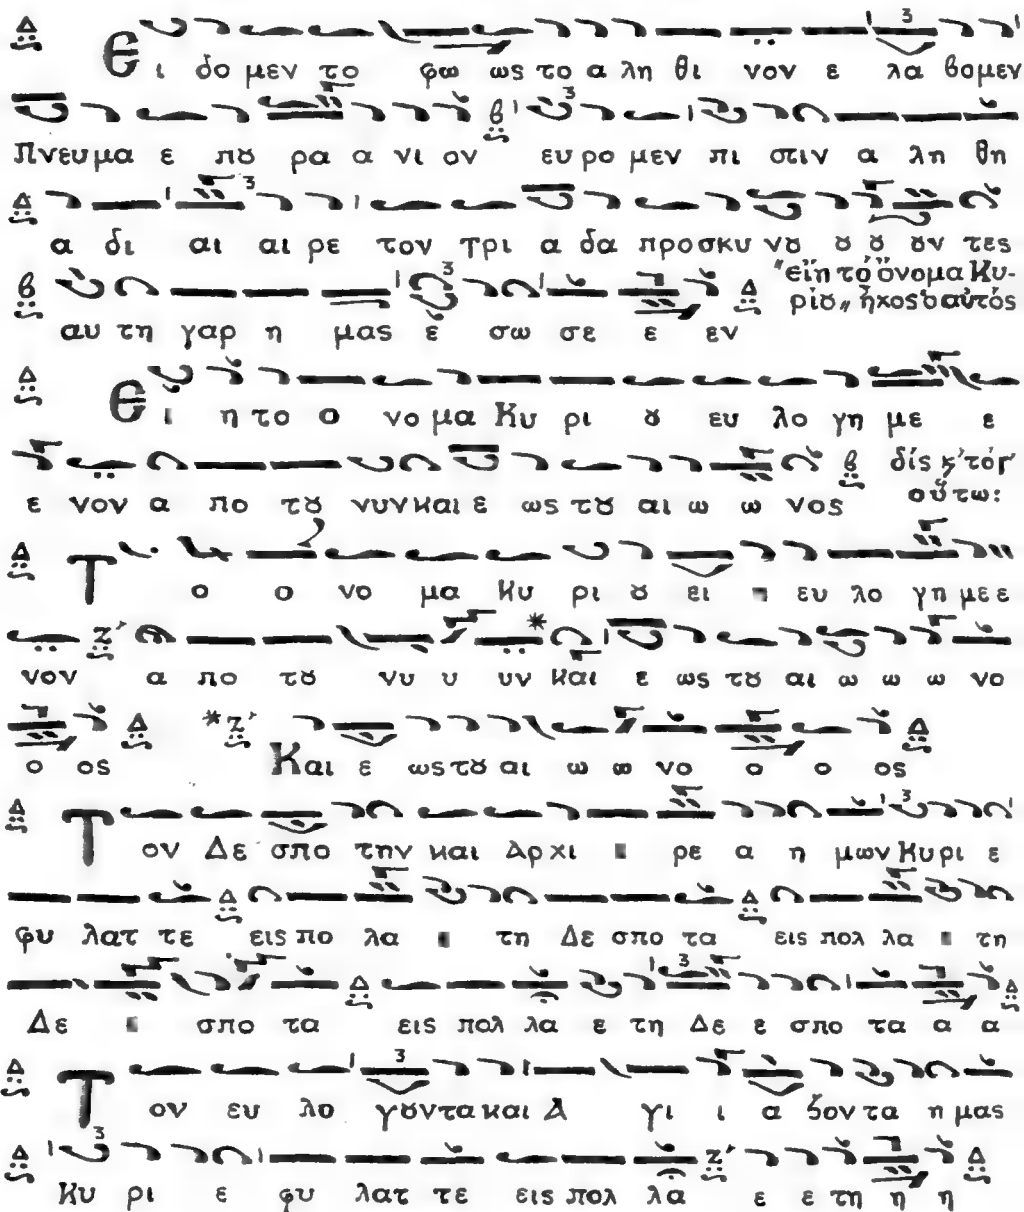 Ει δο μεν το φω ως το α λη θι νον ε λα βομεν
Πνευμα ε πȣ ρα α νι ον ευ ρο μεν πι στιν α λη θη
α δι αι αι ρε τον τρι α δα προσκυ νȣ ȣ ȣ ȣν τες
αυ τη γαρ η μας ε σω σε ε εν
"εἴη τό ὄνομα Κυ-
ρίȣ" ἦχος ὁ αὐτός
Ει η το ο νο μα Κυ ρι ȣ ευ λο γη με ε
ε νον α πο τȣ νυν και ε ως τȣ αι ω ω νος
δίς κ' τό γ'
οὕτω:
Τ ο ο νο μα Κυ ρι ȣ ει ευ λο γη με ε
νον α πο τȣ νυ υ υν και ε ως τȣ αι ω ω ω νο
ο ος * Και ε ως τȣ αι ω ω νο ο ο ος
Τ ον Δε σπο την και Αρ χι ρε α η μων Κυρι ε
φυ λατ τε εις πο λα τη Δε σπο τα εις πολ λα τη
Δε σπο τα εις πολ λα ε τη Δε ε σπο τα α α
Τ ον ευ λο γȣντα και Α γι ι α ζον τα η μας
Κυ ρι ε φυ λατ τε εις πολ λα ε ε τη η η